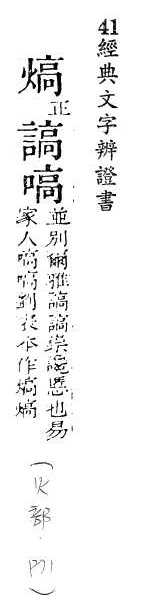 41經典文字辨證書
熇正
謞嗃並別爾雅謞謞崇讒慝也易
家人嗃嗃劉表本作熇熇
(火部.P71)